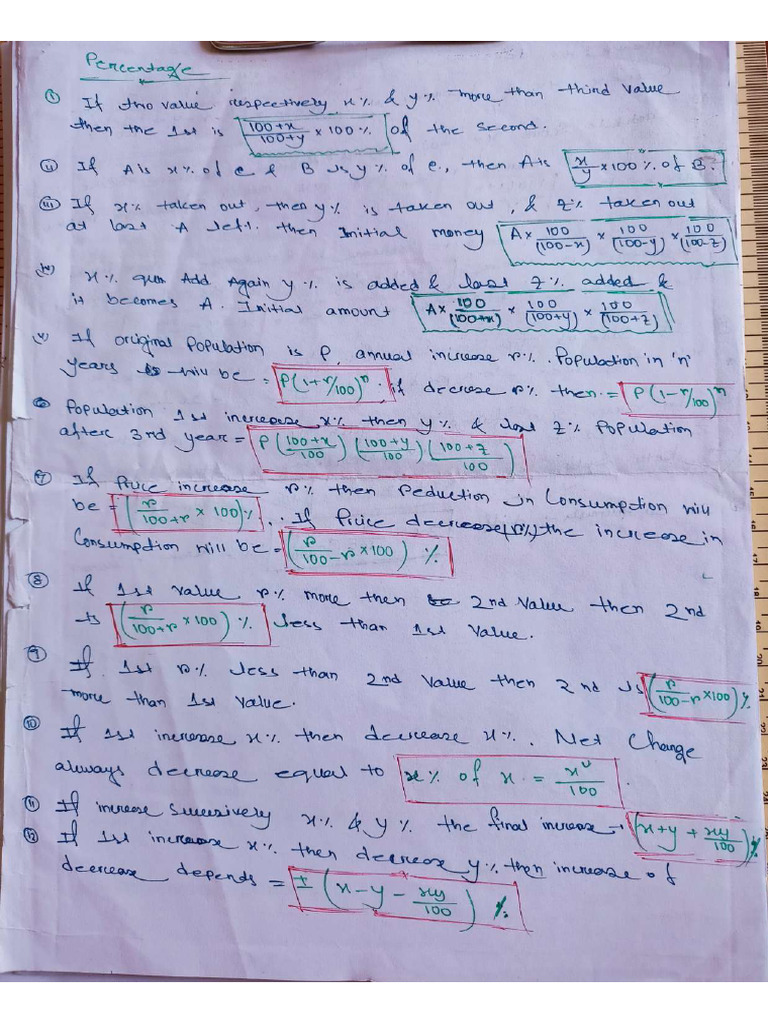 Percentage
(i) If two value respectively x% & y% more than third value
then the 1st is (100+x)/(100+y) × 100% of the second.
(ii) If A is x% of c & B is y% of c, then A is x/y × 100% of B.
(iii) If x% taken out, then y% is taken out, & z% taken out
at last A left. then Initial money A × 100/(100-x) × 100/(100-y) × 100/(100-z)
(iv) x% Add Again y% is added & last z% added &
it becomes A. Initial amount A × 100/(100+x) × 100/(100+y) × 100/(100+z)
(v) If original Population is P, annual increase r%. Population in 'n'
years will be = P(1+r/100)^n. if decrese r% then = P(1-r/100)^n
(6) Population 1st increase x% then y% & last z% Population
after 3rd year = P((100+x)/100)((100+y)/100)((100+z)/100)
(7) If Price increase r% then Reduction in Consumption will
be = (r/(100+r) × 100)%. If Price decrease (r%) the increase in
Consumption will be = (r/(100-r) × 100) %
(8) If 1st value r% more then 2nd value then 2nd
is (r/(100+r) × 100) % less than 1st value.
(9) If 1st r% less than 2nd value then 2nd is (r/(100-r) × 100)%
more than 1st value.
(10) If 1st increase x% then decrease x%. Net Change
always decrease equal to x% of x = x²/100.
(11) If increase sucesively x% & y% the final increase → (x+y+xy/100)%
(12) If 1st increase x% then decrease y% then increase of
decrease depends = ± (x-y-xy/100) %